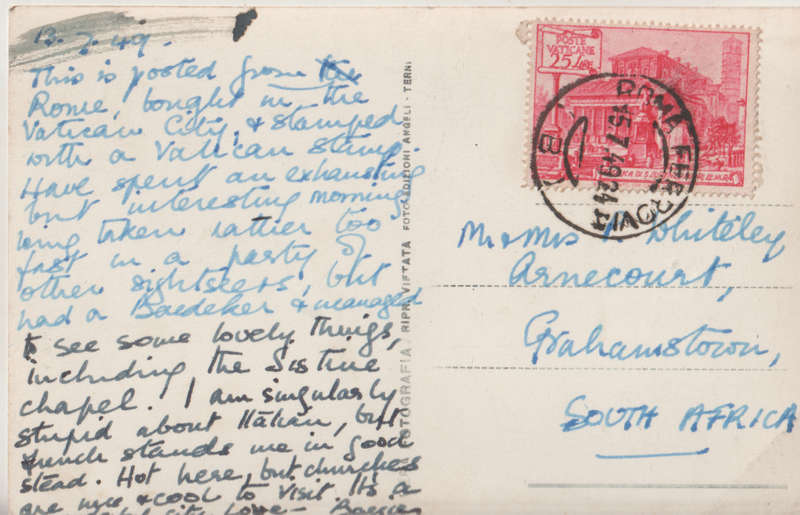 13.7.49.
This is posted from the
Rome, bought in the
Vatican City, & stamped
with a Vatican stamp.
Have spent an exhausting
but interesting morning
being taken rather too
fast in a party of
other sightseers, but
had a Baedeker & managed
to see some lovely things,
including the Sistine
chapel. I am singularly
stupid about Italian, but
French stands me in good
stead. Hot here, but churches
are nice & cool to visit. Its a
city. Love –
FOTOGRAFIA. RIPR. VIETATA FOTO-EDIZIONI ANGELI - TERNI
POSTE
VATICANE
25 LIRE
ROMA FERROVIA
15.7.49.24
Mr & Mrs Whiteley
Arnecourt,
Grahamstown,
SOUTH AFRICA